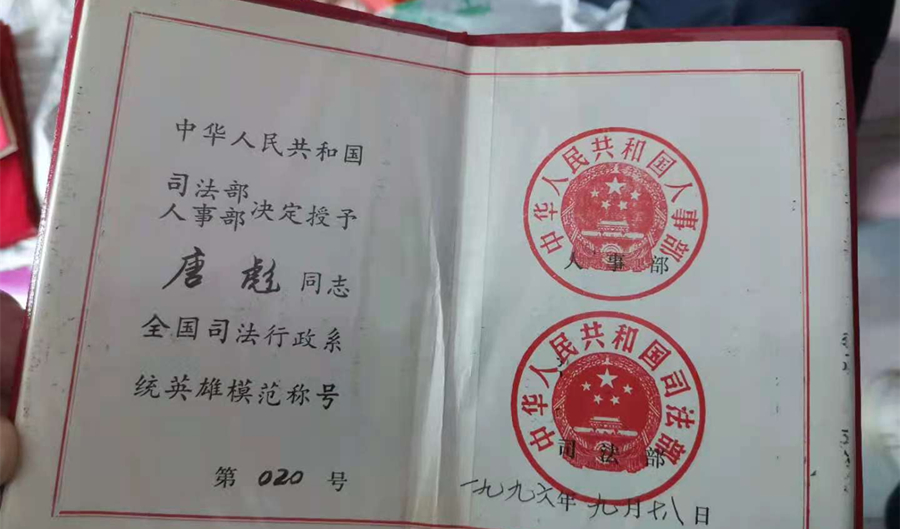 中华人民共和国
司法部
人事部决定授予
唐彪同志
全国司法行政系
统英雄模范称号
第020号
中华人民共和国人事部
人事部
中华人民共和国司法部
司法部
一九九六年九月十八日